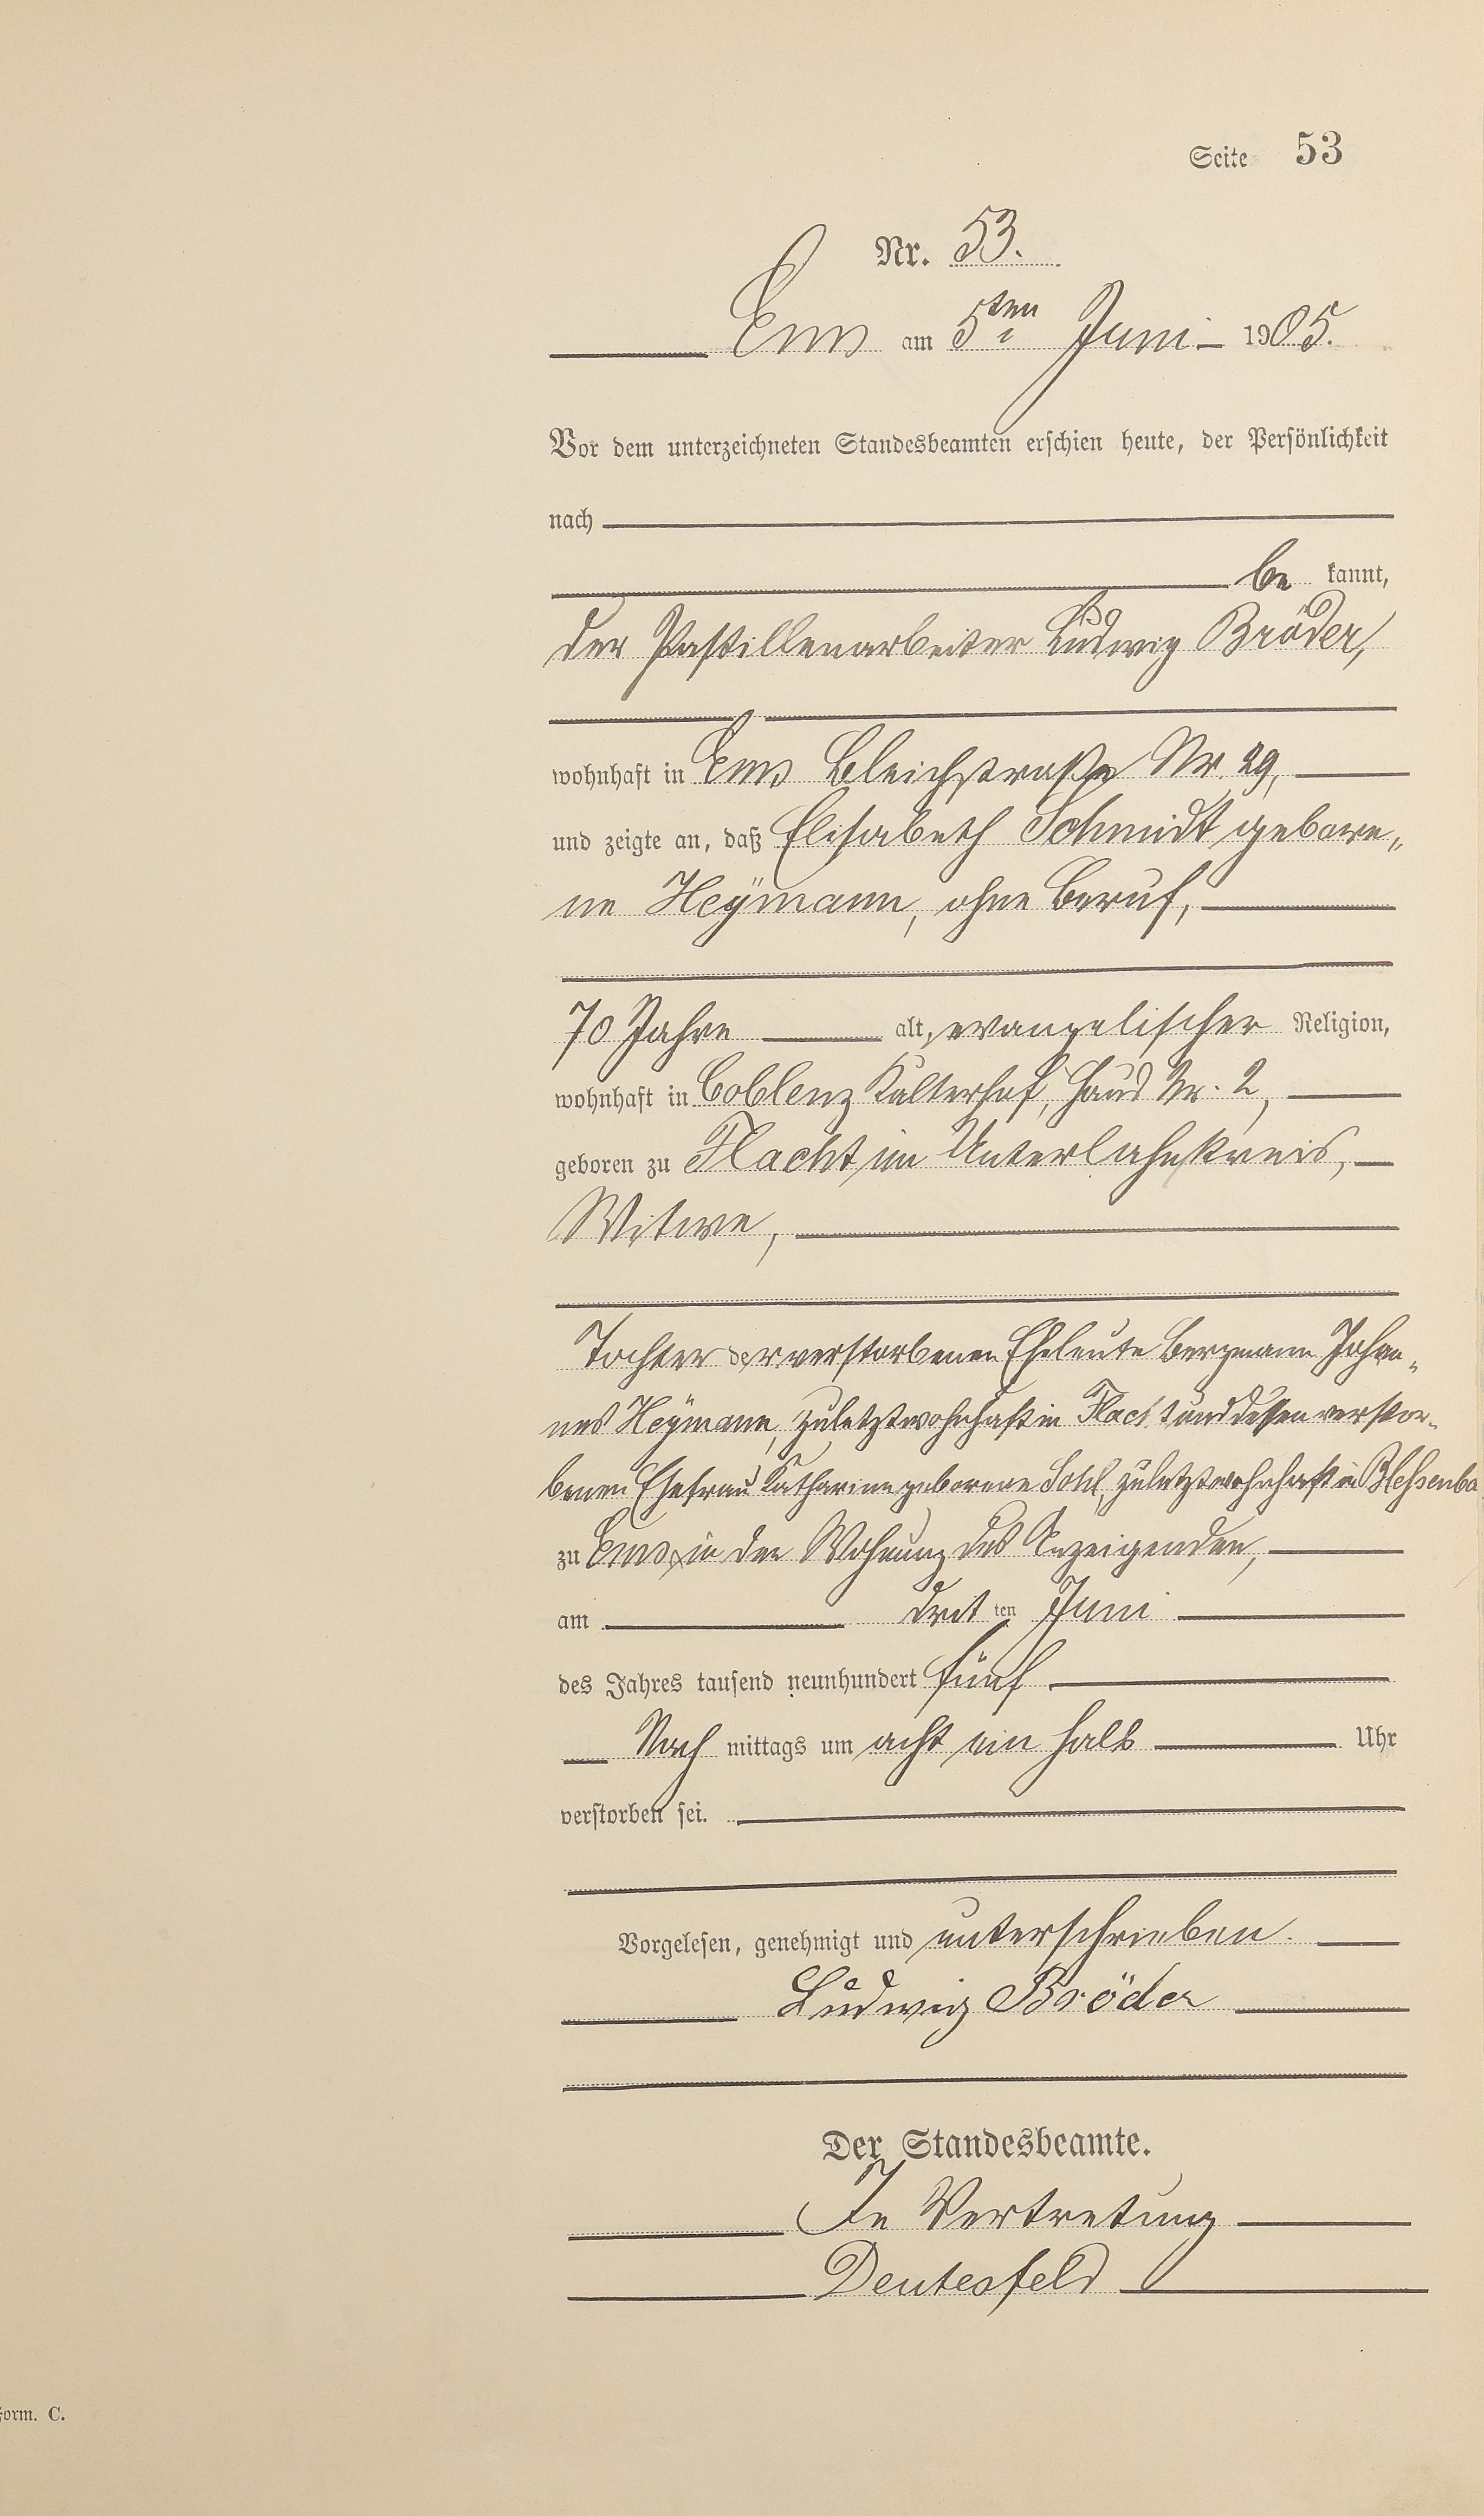 Seite 53
Nr. 53.
Ems am 5ten Juni 1905.
Vor dem unterzeichneten Standesbeamten erschien heute, der Persönlichkeit
nach
be kannt,
der Pastillenarbeiter Ludwig Bröder,
wohnhaft in Ems Bleichstraße Nr. 29,
und zeigte an, daß Elisabeth Schmidt gebore„
ne Heÿmann, ohne Beruf,
70 Jahre alt, evangelischer Religion,
wohnhaft in Coblenz Kalterhof, Haus Nr. 2,
geboren zu Flacht im Unterlahnkreis,
Witwe,
Tochter der verstorbenen Eheleute Bergmann Johan„
nes Heÿmann, zuletzt wohnhaft in Flacht und dessen verstor„
benen Ehefrau Katharine geborene zuletzt wohnhaft in
zu Ems, in der Wohnung des Anzeigenden,
am dritten Juni
des Jahres tausend neunhundert fünf
Nachmittags um acht ein halb Uhr
verstorben sei.
Vorgelesen, genehmigt und unterschrieben.
Ludwig Bröder
Der Standesbeamte.
In Vertretung
Deutesfeld
Form. C.